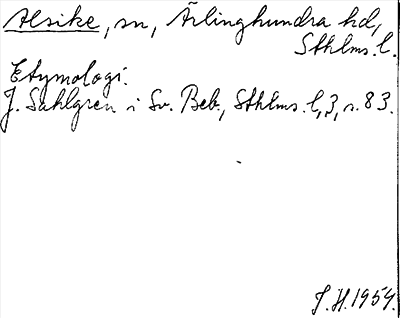 Alsike, sn, Ärlinghundra hd,
Sthlms. l.
Etymologi:
J. Sahlgren i Sv. Beb., Sthlms. l, 3, s. 83.
J. H. 1954.